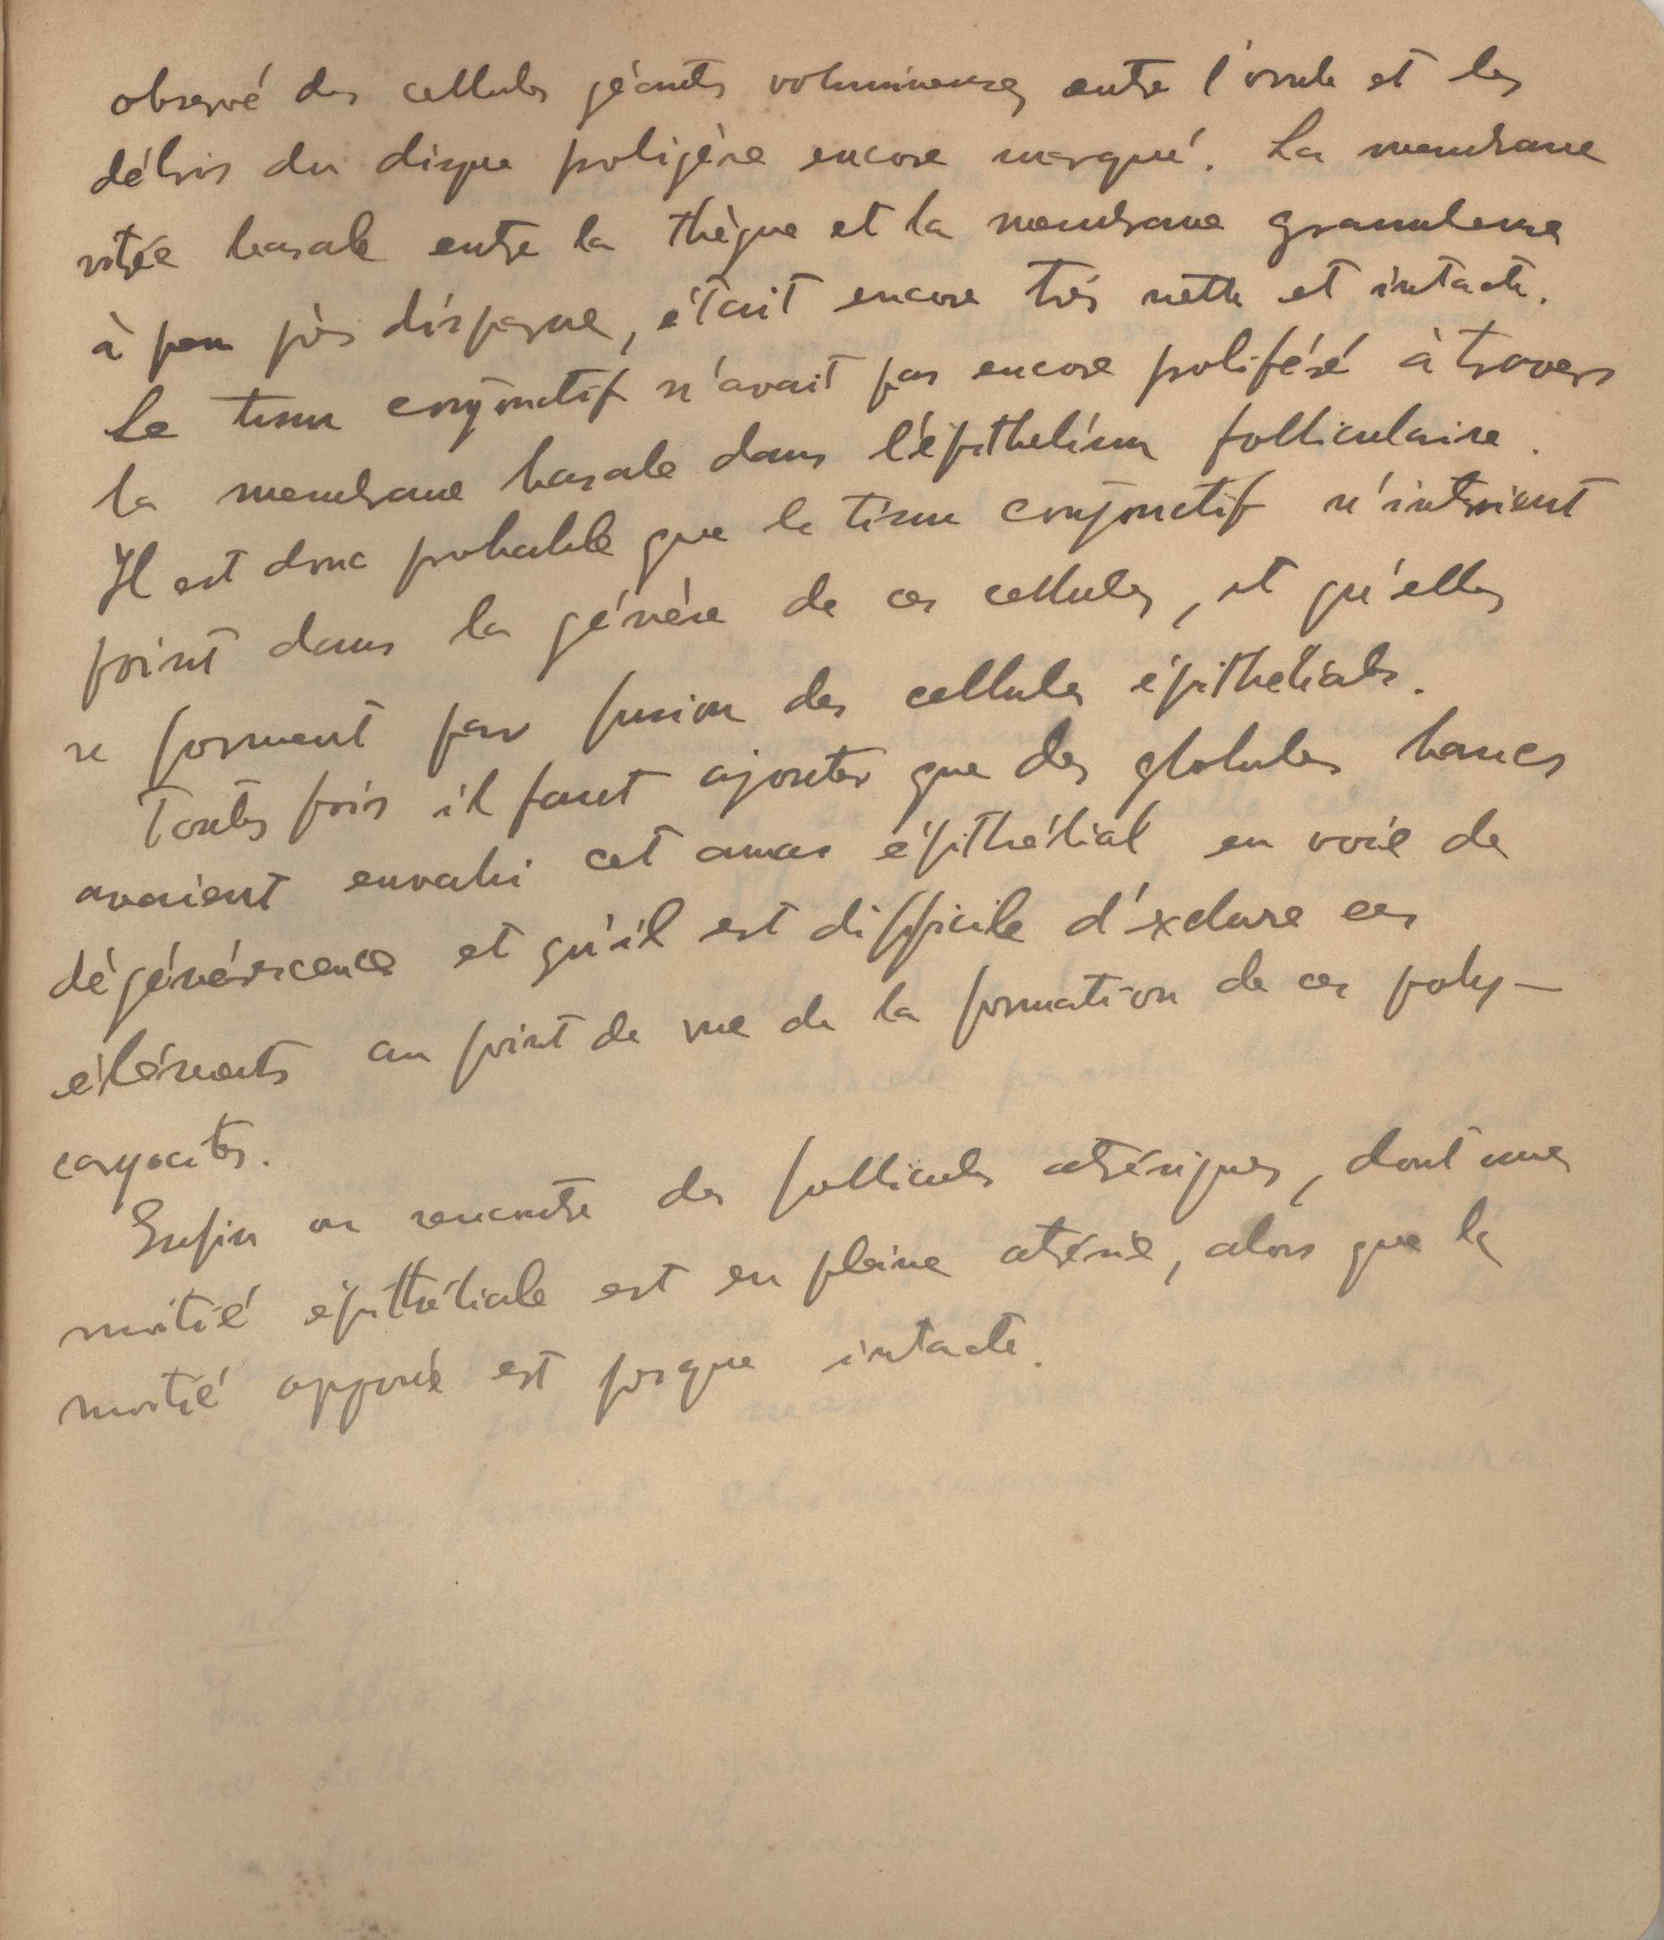 observé des cellules géantes volumineuses entre l'ovule et les
débris du disque proligère encore marqué. La membrane
vitrée basale entre la thèque et la membrane granuleuse
à peu près disparue, était encore très nette et intacte.
Le tissu conjonctif n'avait pas encore proliféré à travers
la membrane basale dans l'épithelium folliculaire.
Il est donc probable que le tissu conjonctif n'intervient
point dans la génèse de ces cellules, et qu'elles
se forment par fusion des cellules épitheliales.
Toutes fois il faut ajouter que des globules blancs
avaient envahi cet amas épithélial en voie de
dégénérescence et qu'il est difficile d'éxclure ces
éléments au point de vue de la formation de ces poly-
caryocites.
Enfin on rencontre des follicules atrésiques, dont une
moitié épithéliale est en pleine atrésie, alors que la
moitié opposée est presque intacte.